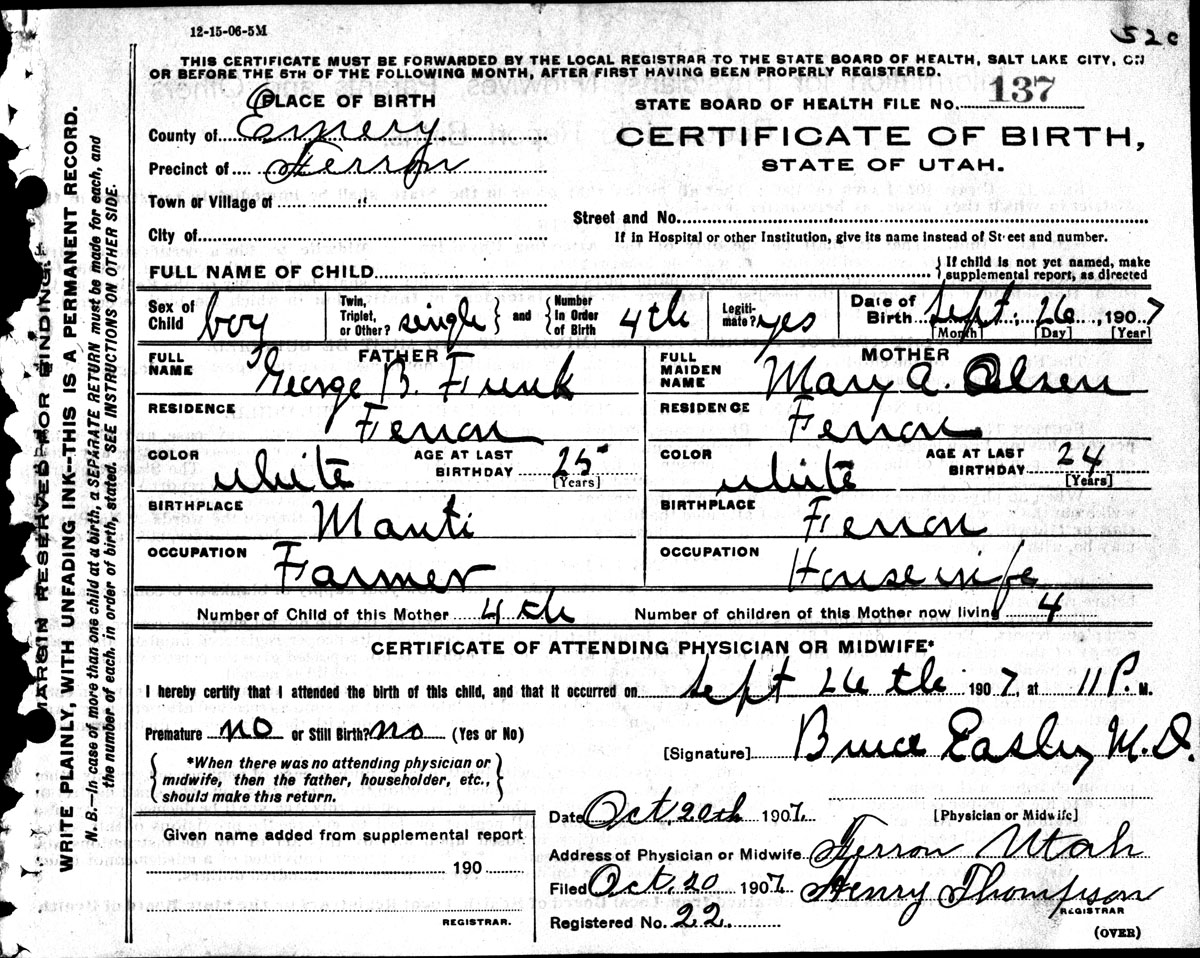 12-15-06-5M
52c
THIS CERTIFICATE MUST BE FORWARDED BY THE LOCAL REGISTRAR TO THE STATE BOARD OF HEALTH, SALT LAKE CITY, ON
OR BEFORE THE 5TH OF THE FOLLOWING MONTH, AFTER FIRST HAVING BEEN PROPERLY REGISTERED.
PLACE OF BIRTH
County of Emery
Precinct of Ferron
Town or Village of "
City of
STATE BOARD OF HEALTH FILE No. 137
CERTIFICATE OF BIRTH,
STATE OF UTAH.
Street and No.
If in Hospital or other Institution, give its name instead of Street and number.
FULL NAME OF CHILD { If child is not yet named, make
supplemental report, as directed
Sex of Child boy Twin, Triplet, or Other? single } and { Number In Order of Birth 4th Legiti-mate? yes Date of Birth Sept. 26, 1907
[Month] [Day] [Year]
FATHER
FULL NAME George B. Funk
RESIDENCE Ferron
COLOR white AGE AT LAST BIRTHDAY 25 [Years]
BIRTHPLACE Manti
OCCUPATION Farmer
MOTHER
FULL MAIDEN NAME Mary A. Olsen
RESIDENCE Ferron
COLOR white AGE AT LAST BIRTHDAY 24 [Years]
BIRTHPLACE Ferron
OCCUPATION Housewife
Number of Child of this Mother 4th Number of children of this Mother now living 4
CERTIFICATE OF ATTENDING PHYSICIAN OR MIDWIFE*
I hereby certify that I attended the birth of this child, and that it occurred on Sept 26th 1907, at 11 P. M.
Premature no or Still Birth? no (Yes or No)
*When there was no attending physician or
midwife, then the father, householder, etc.,
should make this return.
[Signature] Bruce Easley M.D.
[Physician or Midwife]
Given name added from supplemental report
190
REGISTRAR.
Date Oct. 20th 1907.
Address of Physician or Midwife Ferron Utah
Filed Oct. 20 1907 Henry Thompson
REGISTRAR
Registered No. 22.
(OVER)
MARGIN RESERVED FOR BINDING.
WRITE PLAINLY, WITH UNFADING INK--THIS IS A PERMANENT RECORD.
N. B.—In case of more than one child at a birth, a SEPARATE RETURN must be made for each, and
the number of each, in order of birth, stated. SEE INSTRUCTIONS ON OTHER SIDE.